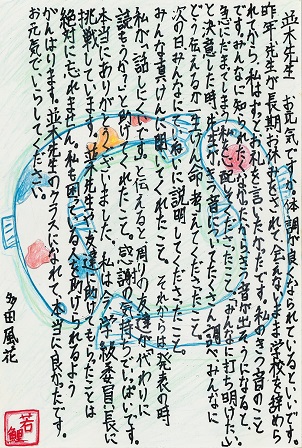 並木先生　お元気ですか。体調が良くなられているといいです。
昨年、先生が長期お休みをされて会えないまま学校を辞めら
れてから、私はずっとお礼を言いたかったです。私のきつ音のこと
ですが、みんなに知られたくなかったしきつ音が出そうになると、
急にだまってしまう私を心配してくださったこと。「みんなに打ち明けた
い」と決意した時、先生がきつ音について、たくさん調べ、みんなに
どう伝えるか一生けん命考えてくださったこと。
次の日みんなにていねいに説明してくださったこと。
みんな真けんに聞いてくれたこと。それからは発表の時
私が「話しにくい」と伝えると周りの友達が「代わりに
読もうか？」と助けてくれたこと。感謝の気持ちでいっぱいです。
本当にありがとうございました。私は今、学級委員長に
挑戦しています。並木先生や友達に助けてもらったことは
絶対に忘れません。私も困っている人を助けられるよう
がんばります。並木先生のクラスになれて本当に良かったです。
お元気でいらしてください。
多田風花
若鯉